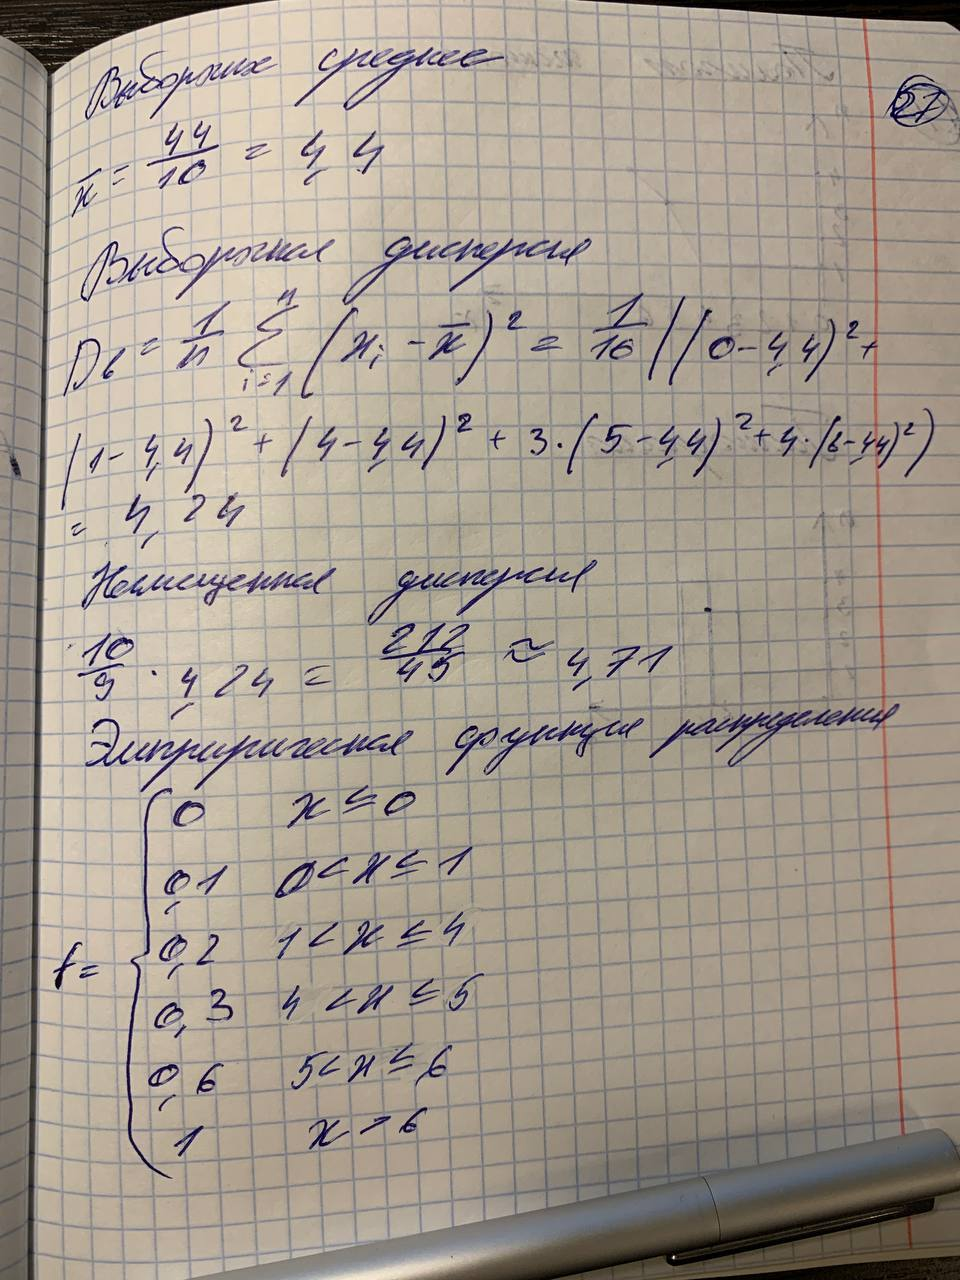 Выборочн среднее
27
x̄ = 44/10 = 4,4
Выборочная дисперсия
Dв = 1/n Σ_{i=1}^{n} (x_i - x̄)² = 1/10 ((0-4,4)² +
(1-4,4)² + (4-4,4)² + 3·(5-4,4)² + 4·(6-4,4)²)
= 4,24
Несмещенная дисперсия
10/9 · 4,24 = 212/45 ≈ 4,71
Эмпирическая функция распределения
f = { 0 x ≤ 0
0,1 0 < x ≤ 1
0,2 1 < x ≤ 4
0,3 4 < x ≤ 5
0,6 5 < x ≤ 6
1 x > 6